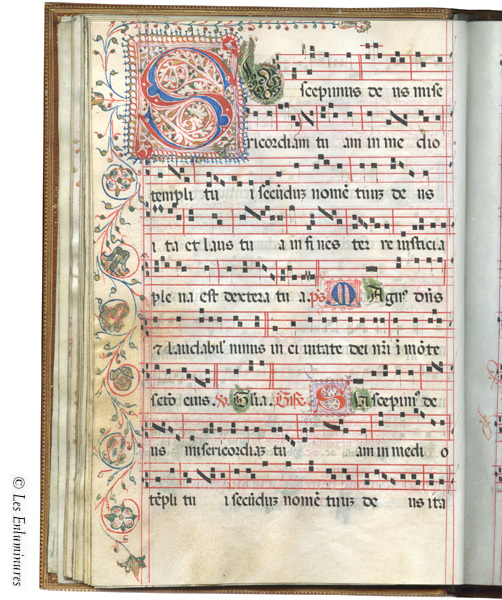 Suscepimus de us mise
ricordiam tu am in me dio
templi tu i secūdūz nomē tuuz de us
i ta et laus tu a in fi nes ter re iusticia
ple na est dextera tu a. ps. Magn᷒ dn̄s
⁊ laudabil' nimis in ci uitate dei nr̄i ī mōte
scto eius. Glia. Suscepim᷒ de
us misericordiaz tu am in medi o
tēpli tu i secūdūz nomē tuuz de us ita
© Les Enluminures